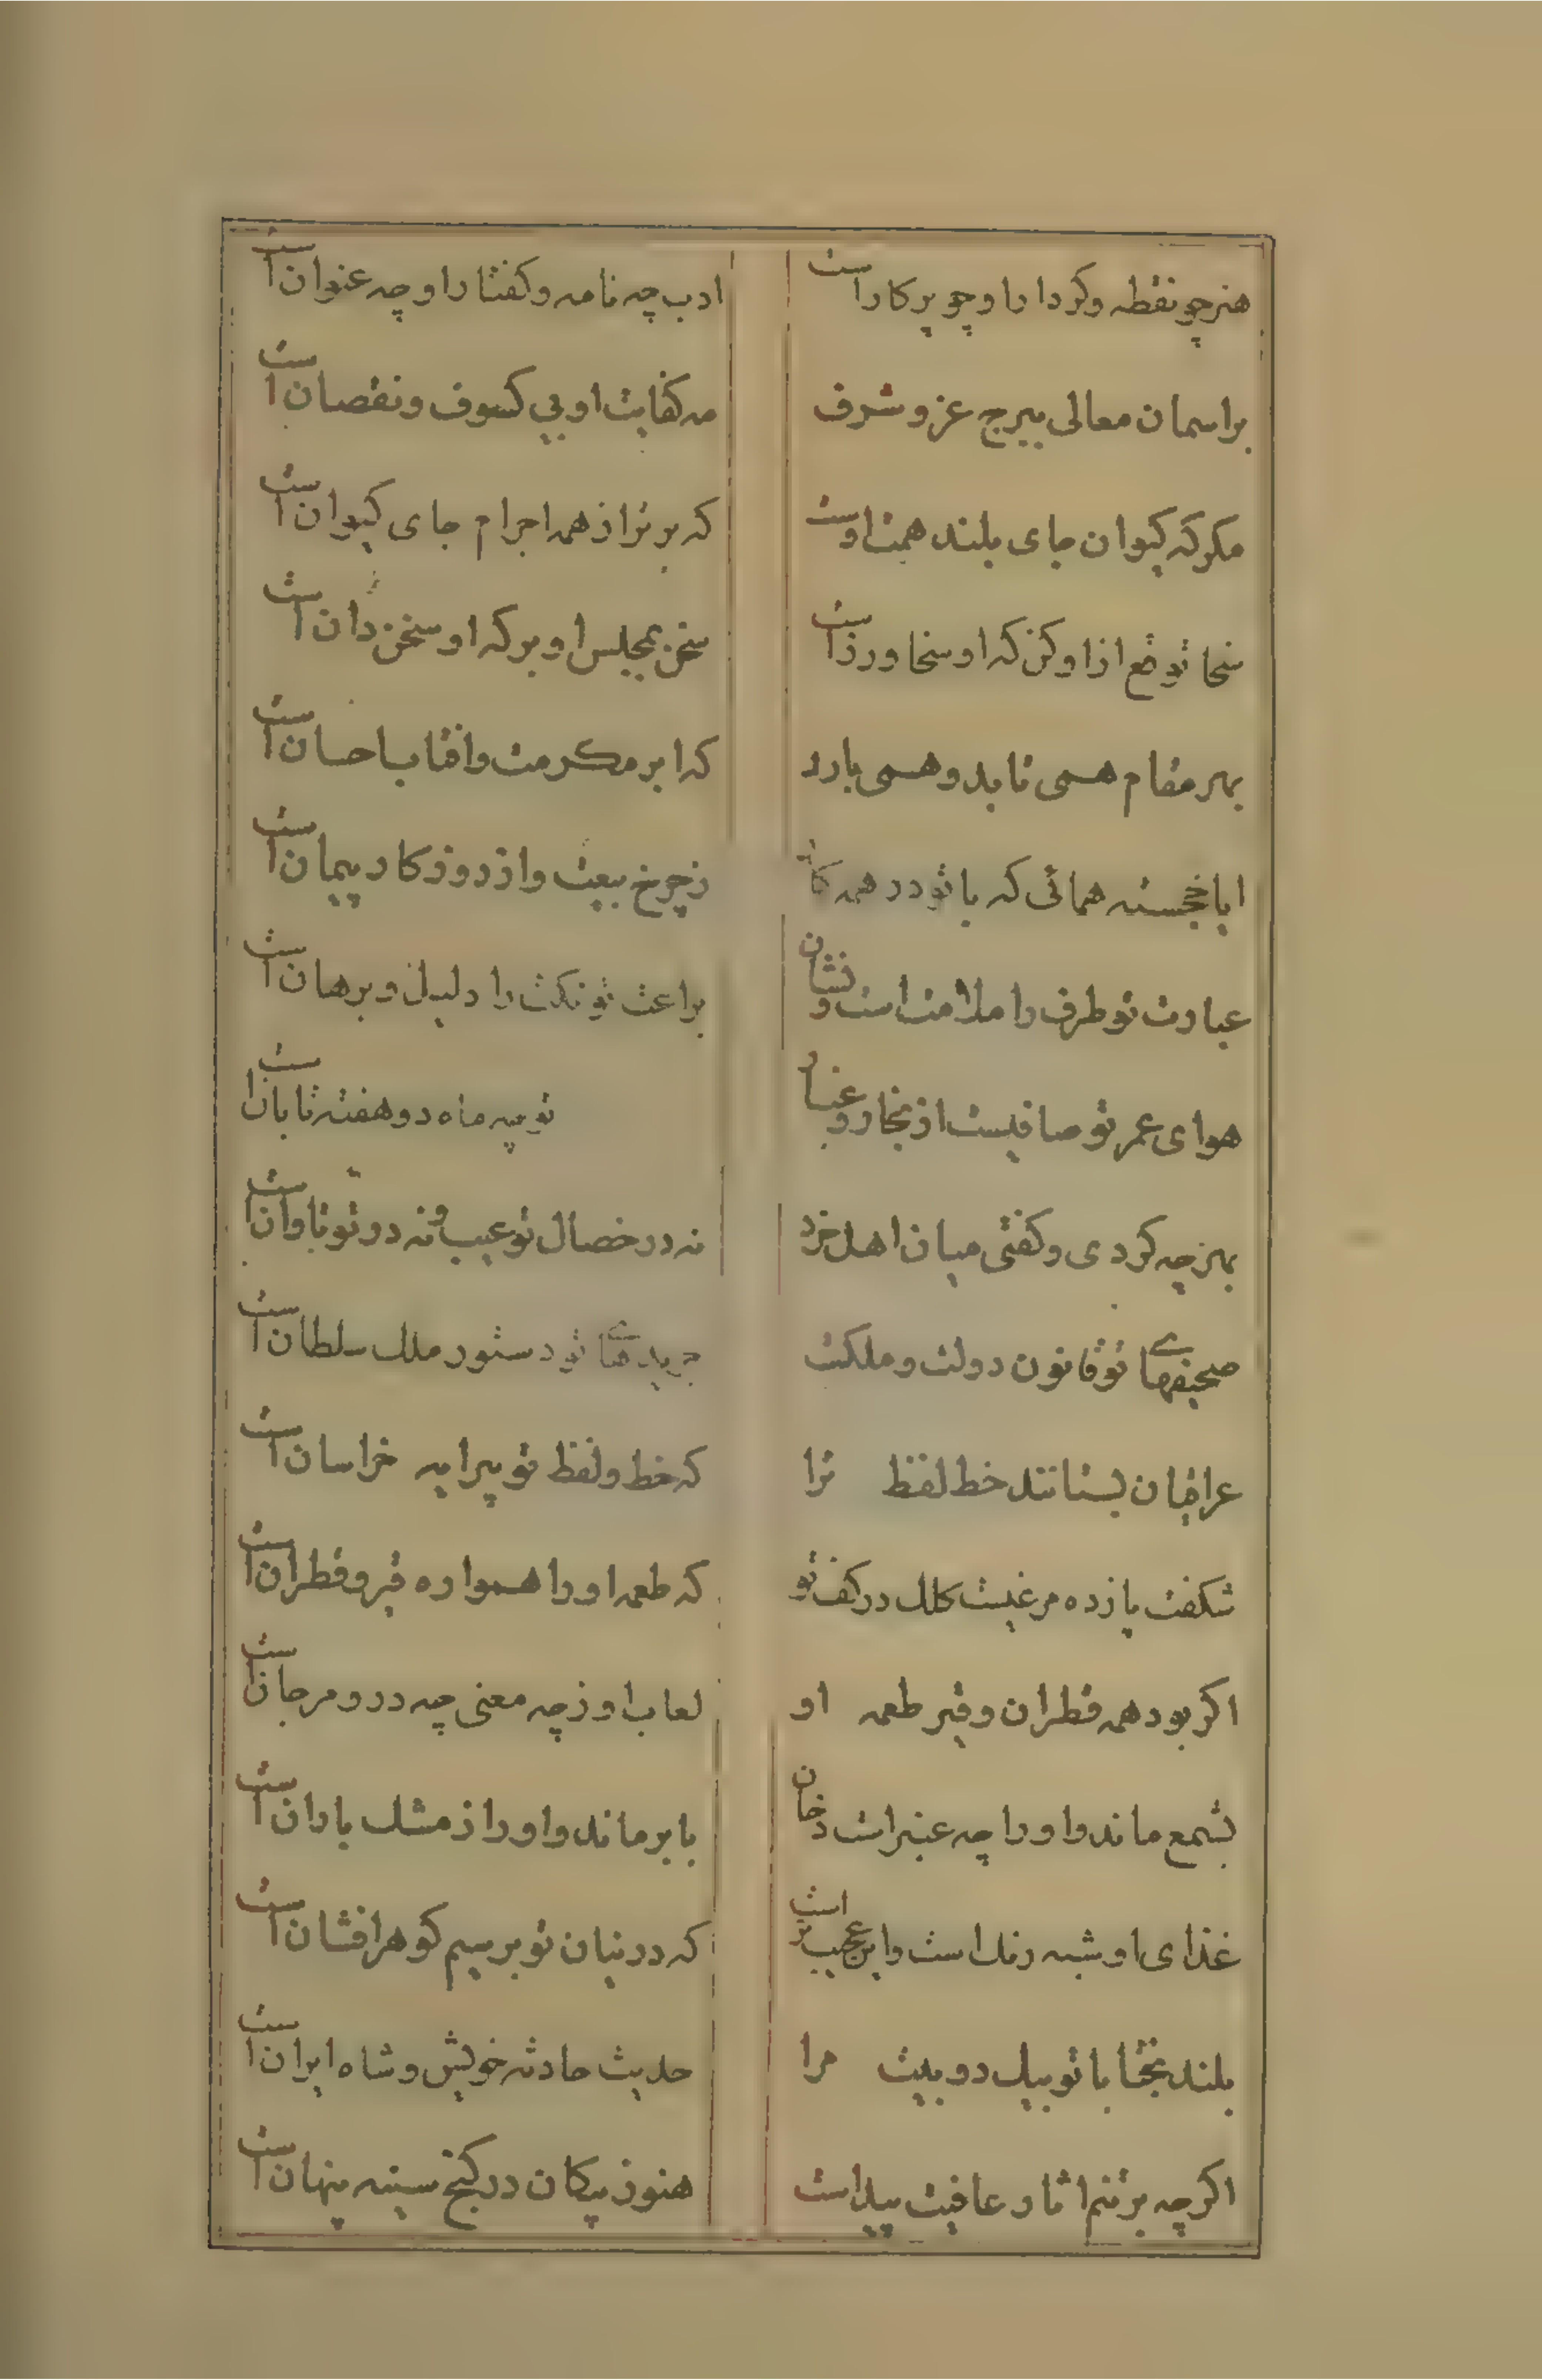 هنر چو نقطه و کردار او چو پرکار است
ادب چه نامه و کفتار او چه عنوان است
بر اسمان معالی ببرج عز و شرف
مه کفایت او بی کسوف و نقصان است
مکر که کیوان جای بلند همت اوست
که برتر از همه اجرام جای کیوان است
سخا توقع ازو کن که او سخا ورز است
سخن بمجلس او بر که او سخن دان است
بهر مقام همی تابد و همی بارد
که ابر مکرمت و افتاب احسان است
ایا خجسته همائی که با تو در همه کار
ز چرخ بیعت و از روزکار پیمان است
عبارت تو طرف را ملامت است و نشان
براعت تو نکت را دلیل و برهان است
هوای عمر تو صافیست از بخار و غبار
تو چه ماه دو هفته تابان است
بهر چه کردی و کفتی میان اهل خرد
نه در خصال تو عیب و نه در تو تاوان است
صحیفهای تو قانون دولت و ملکت
جریدهای تو دستور ملک سلطان است
عراقیان بستانند خط لفظ ترا
که خط و لفظ تو پیرایه خراسان است
شکفت یازده مرغیست کلک در کف تو
که طعمه او را همواره قیر و قطران است
اکر بود همه قطران و قیر طعمه او
لعاب او ز چه معنی چه در و مرجان است
بشمع ماند و او را چه عنبر است دخان
بابر ماند و او را ز مشک باران است
غذای او شبه رنک است و این عجیب تر است
که در بنان تو بر سیم کوهر افشان است
بلند بختا با تو بیک دو بیت مرا
حدیث حادثه خویش و شاه ایران است
اکر چه بر تنم اثار عافیت پیداست
هنوز پیکان در کنج سینه پنهان است